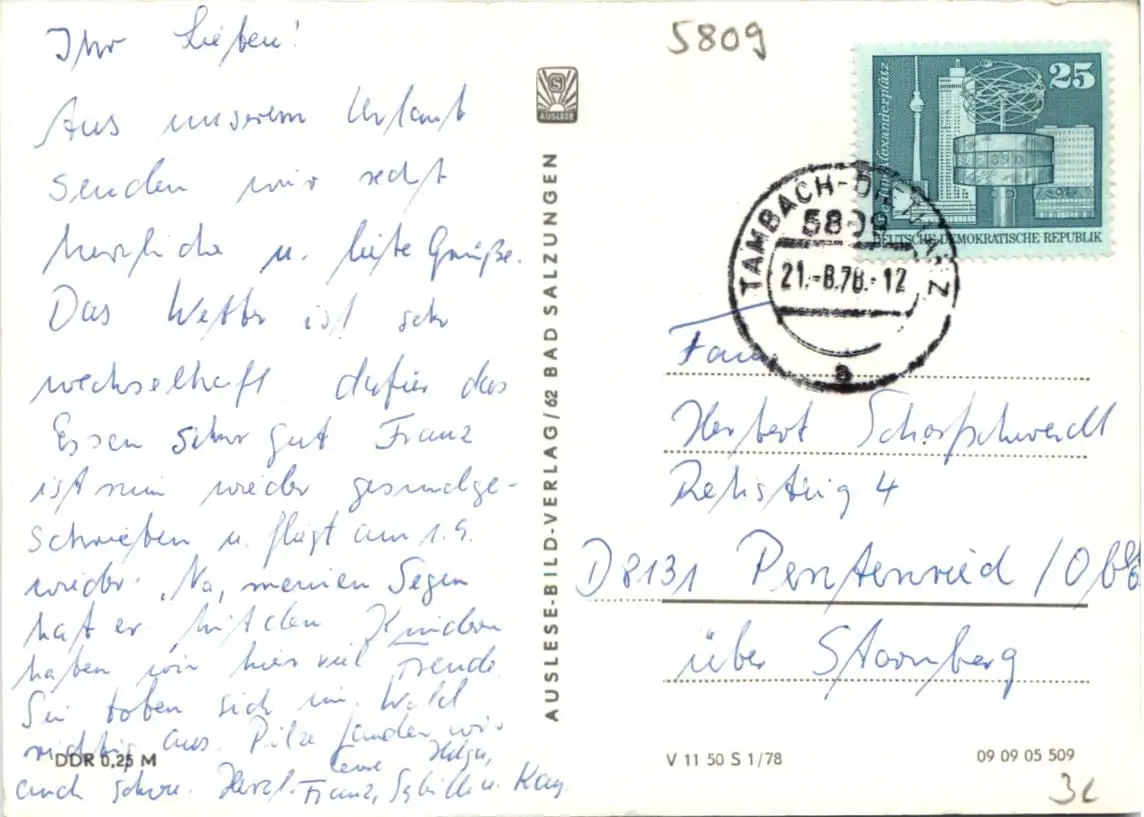 5809
Ihr Lieben!
Aus unserem Urlaub
senden wir recht
herzliche u. liebe Grüße.
Das Wetter ist sehr
wechselhaft dafür das
Essen sehr gut Franz
ist nun wieder gesundge-
schrieben u. fliegt am 1.9.
wieder. Na, meinen Segen
hat er. Mit den Kindern
haben wir hier viel Freude.
Sie toben sich im Wald
richtig aus. Pilze fanden wir
auch schon. Herzl.
Eure Helga,
Franz, Sybille u. Kay.
DDR 0,25 M
S
AUSLESE
AUSLESE-BILD-VERLAG/62 BAD SALZUNGEN
Berlin, Alexanderplatz
25
DEUTSCHE DEMOKRATISCHE REPUBLIK
TAMBACH-DIETHARZ
5809
21.-8.78.-12
a
Fam.
Herbert Scharfschwerdt
4
D 8131 Pentenried / Obb
über Starnberg
V 11 50 S 1/78
09 09 05 509